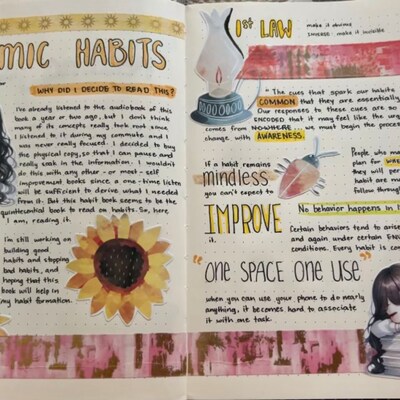 MIC HABITS
WHY DID I DECIDE TO READ THIS?
I've already listened to the audiobook of this
book a year or two ago, but I don't think
many of its concepts really took root since
I listened to it during my commute and I
was never really focused. I decided to buy
the physical copy, so that I can pause and
really seek in the information. I wouldn't
do this with any other - or most - self
improvement books since a one-time listen
will be sufficient to derive what I needed
from it. But this habit book seems to be the
quintessential book to read on habits. So, here
I am, reading it.
I'm still working on
building good
habits and stopping
bad habits, and
hoping that this
book will help in
my habit formation.
1st LAW
make it obvious
INVERSE: make it invisible
"The cues that spark our habits
COMMON that they are essentially
Our responses to these cues are so
ENCODED that it may feel like the urge
comes from NOWHERE... we must begin the process
change with AWARENESS.
If a habit remains
mindless
you can't expect to
IMPROVE
it.
People who ma
plan for WHE
they will per
habit are m
follow through
No behavior happens in i
Certain behaviors tend to arise
and again under certain
conditions. Every habit is con
"ONE SPACE ONE USE"
when you can use your phone to do nearly
anything, it becomes hard to associate
it with one task.